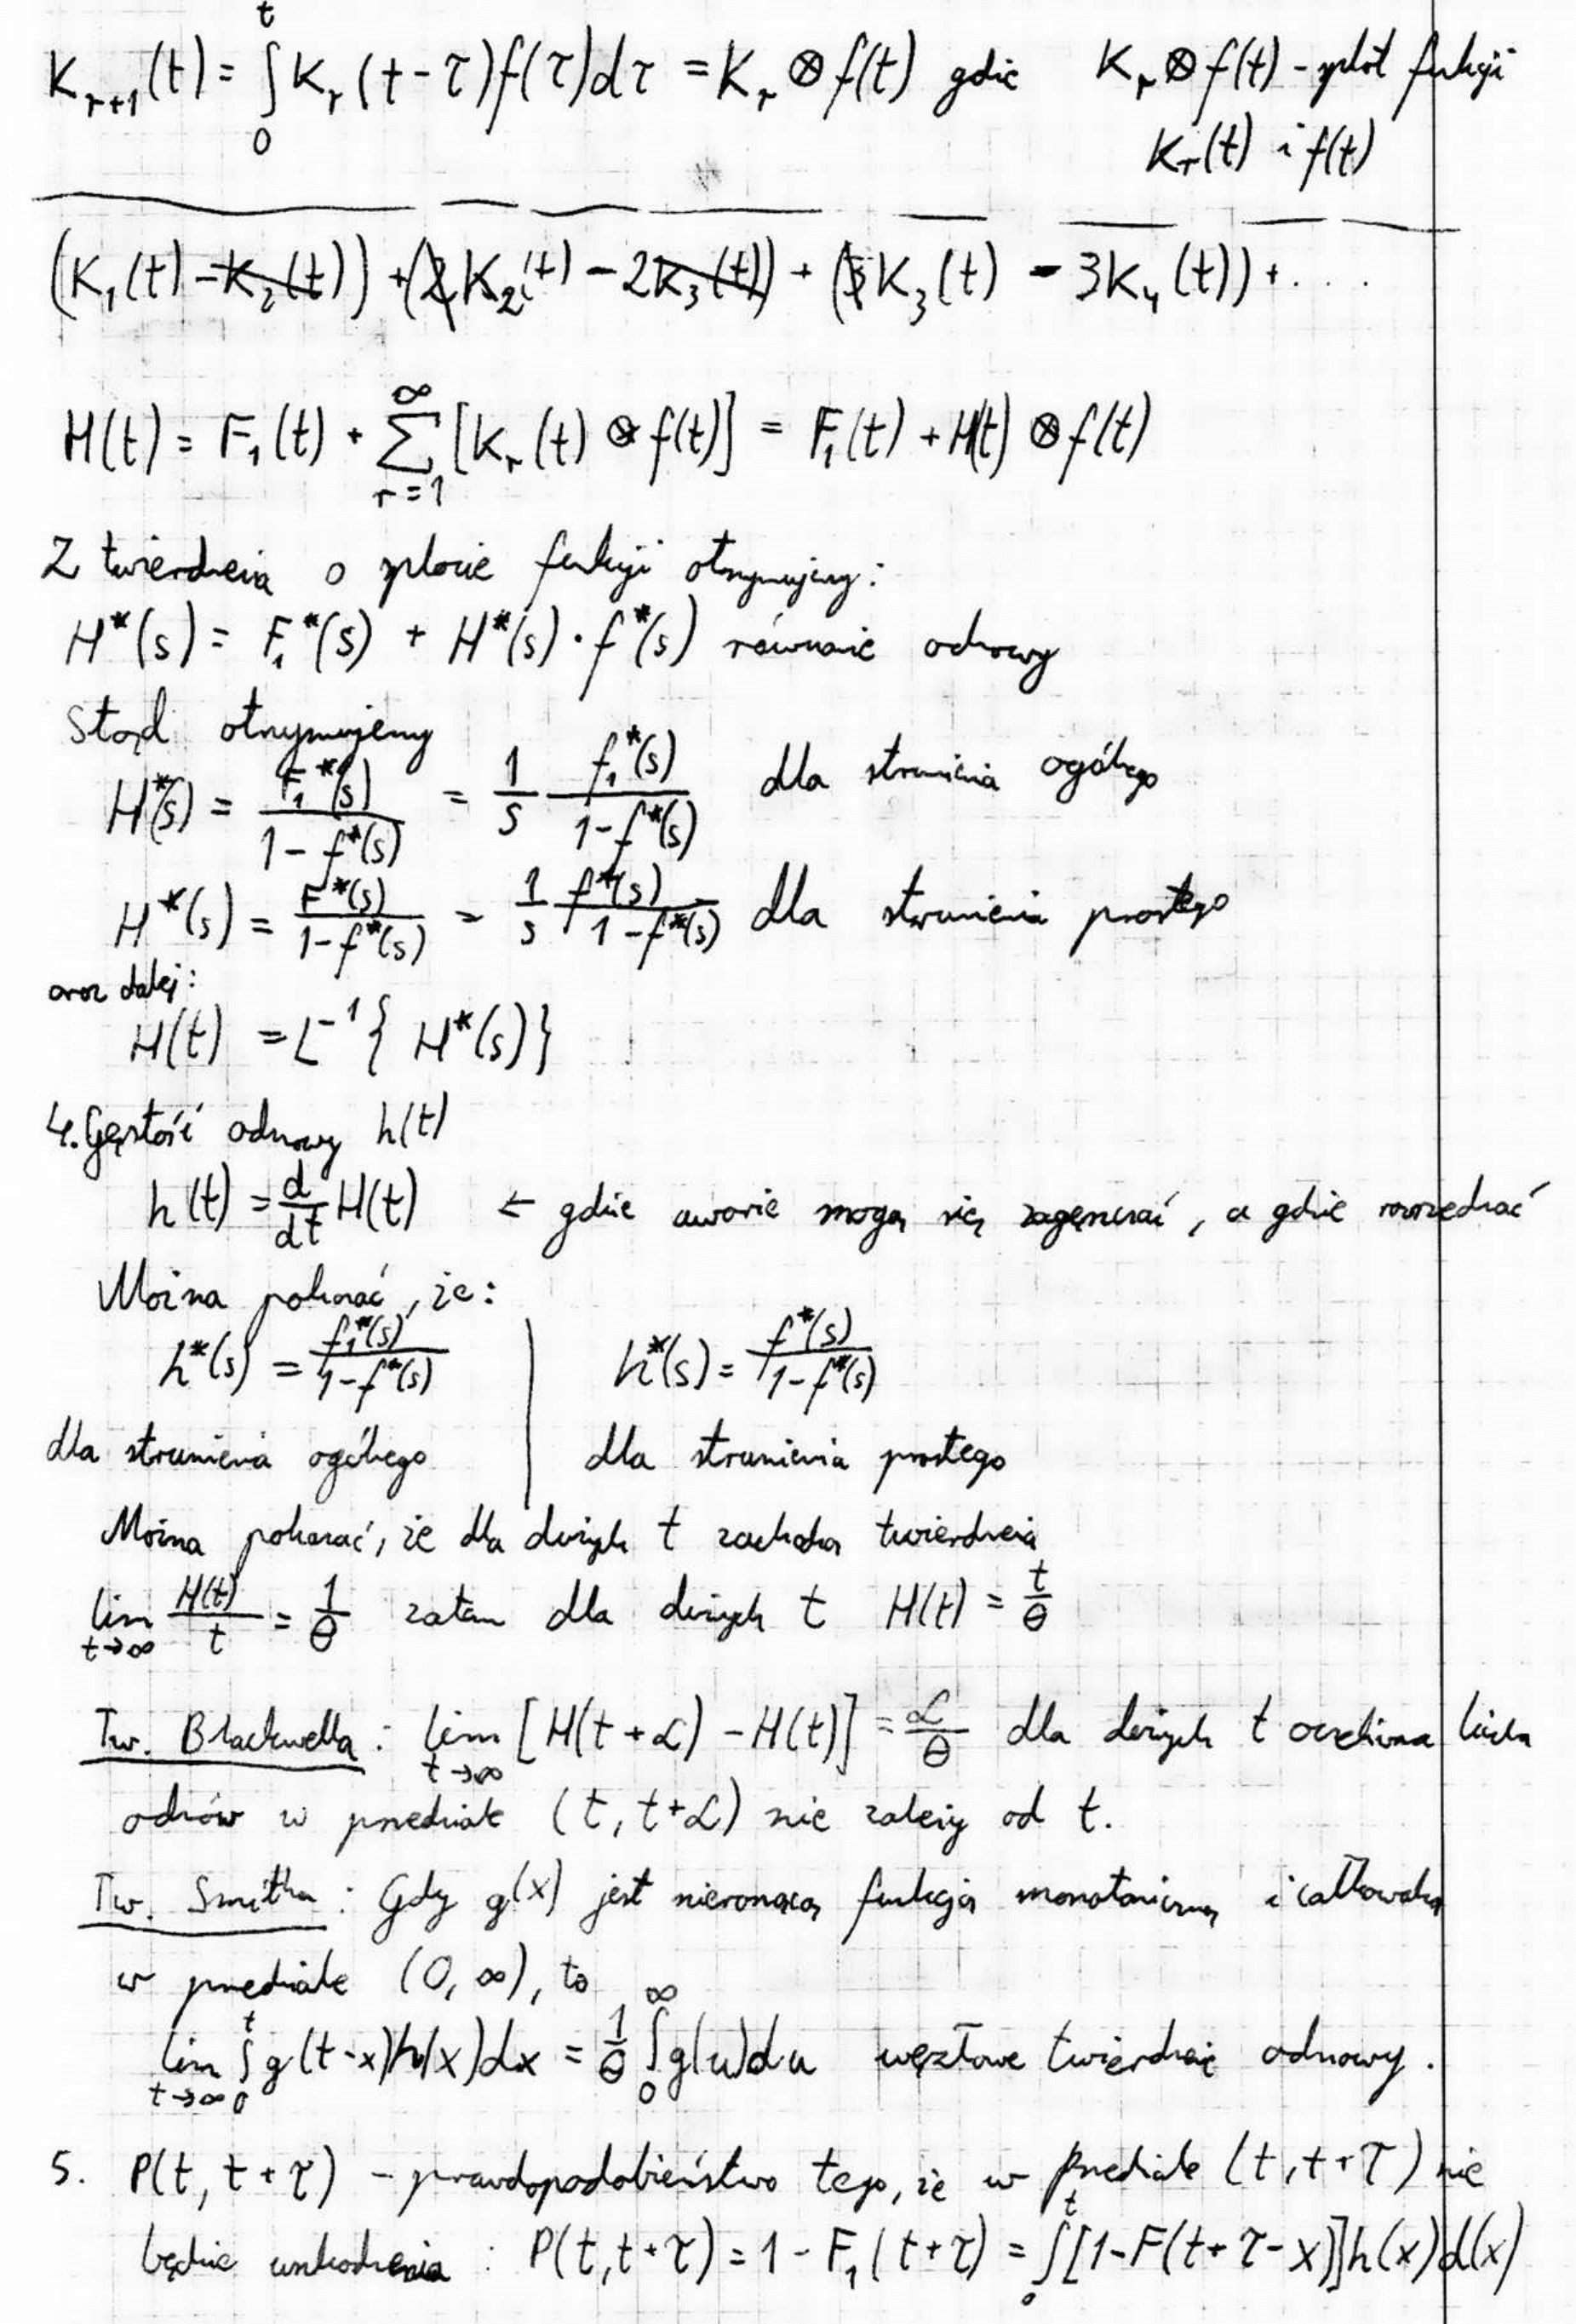 K_{r+1}(t) = ∫_0^t K_r(t-τ)f(τ)dτ = K_r ⊗ f(t) gdzie K_r ⊗ f(t) - splot funkcji
K_r(t) i f(t)
(K_1(t) - K_2(t)) + (2K_2(t) - 2K_3(t)) + (3K_3(t) - 3K_4(t)) + ....
H(t) = F_1(t) + ∑_{r=1}^∞ [K_r(t) ⊗ f(t)] = F_1(t) + H(t) ⊗ f(t)
Z twierdzenia o splocie funkcji otrzymujemy:
H*(s) = F_1*(s) + H*(s)·f*(s) równanie odnowy
Stąd otrzymujemy
H*(s) = F_1*(s) / (1 - f*(s)) = 1/s f_1*(s) / (1 - f*(s)) dla strumienia ogólnego
H*(s) = F*(s) / (1 - f*(s)) = 1/s f*(s) / (1 - f*(s)) dla strumienia prostego
oraz dalej:
H(t) = L^{-1}{ H*(s)}
4. Gęstość odnowy h(t)
h(t) = d/dt H(t) ← gdzie awarie mogą się zagęszczać, a gdzie rozrzedzać
Można pokazać, że:
h*(s) = f_1*(s) / (1 - f*(s)) | h*(s) = f*(s) / (1 - f*(s))
dla strumienia ogólnego | dla strumienia prostego
Można pokazać, że dla dużych t zachodzą twierdzenia
lim_{t→∞} H(t)/t = 1/θ zatem dla dużych t H(t) = t/θ
Tw. Blackwella: lim_{t→∞} [H(t+α) - H(t)] = α/θ dla dużych t oczekiwana liczba
odnów w przedziale (t, t+α) nie zależy od t.
Tw. Smitha: Gdy g(x) jest nierosnącą funkcją monotoniczną i całkowalną
w przedziale (0, ∞), to
lim_{t→∞} ∫_0^t g(t-x)h(x)dx = 1/θ ∫_0^∞ g(u)du węzłowe twierdzenie odnowy.
5. P(t, t+τ) - prawdopodobieństwo tego, że w przedziale (t, t+τ) nie
będzie uszkodzenia: P(t, t+τ) = 1 - F_1(t+τ) = ∫_0^t [1-F(t+τ-x)]h(x)d(x)